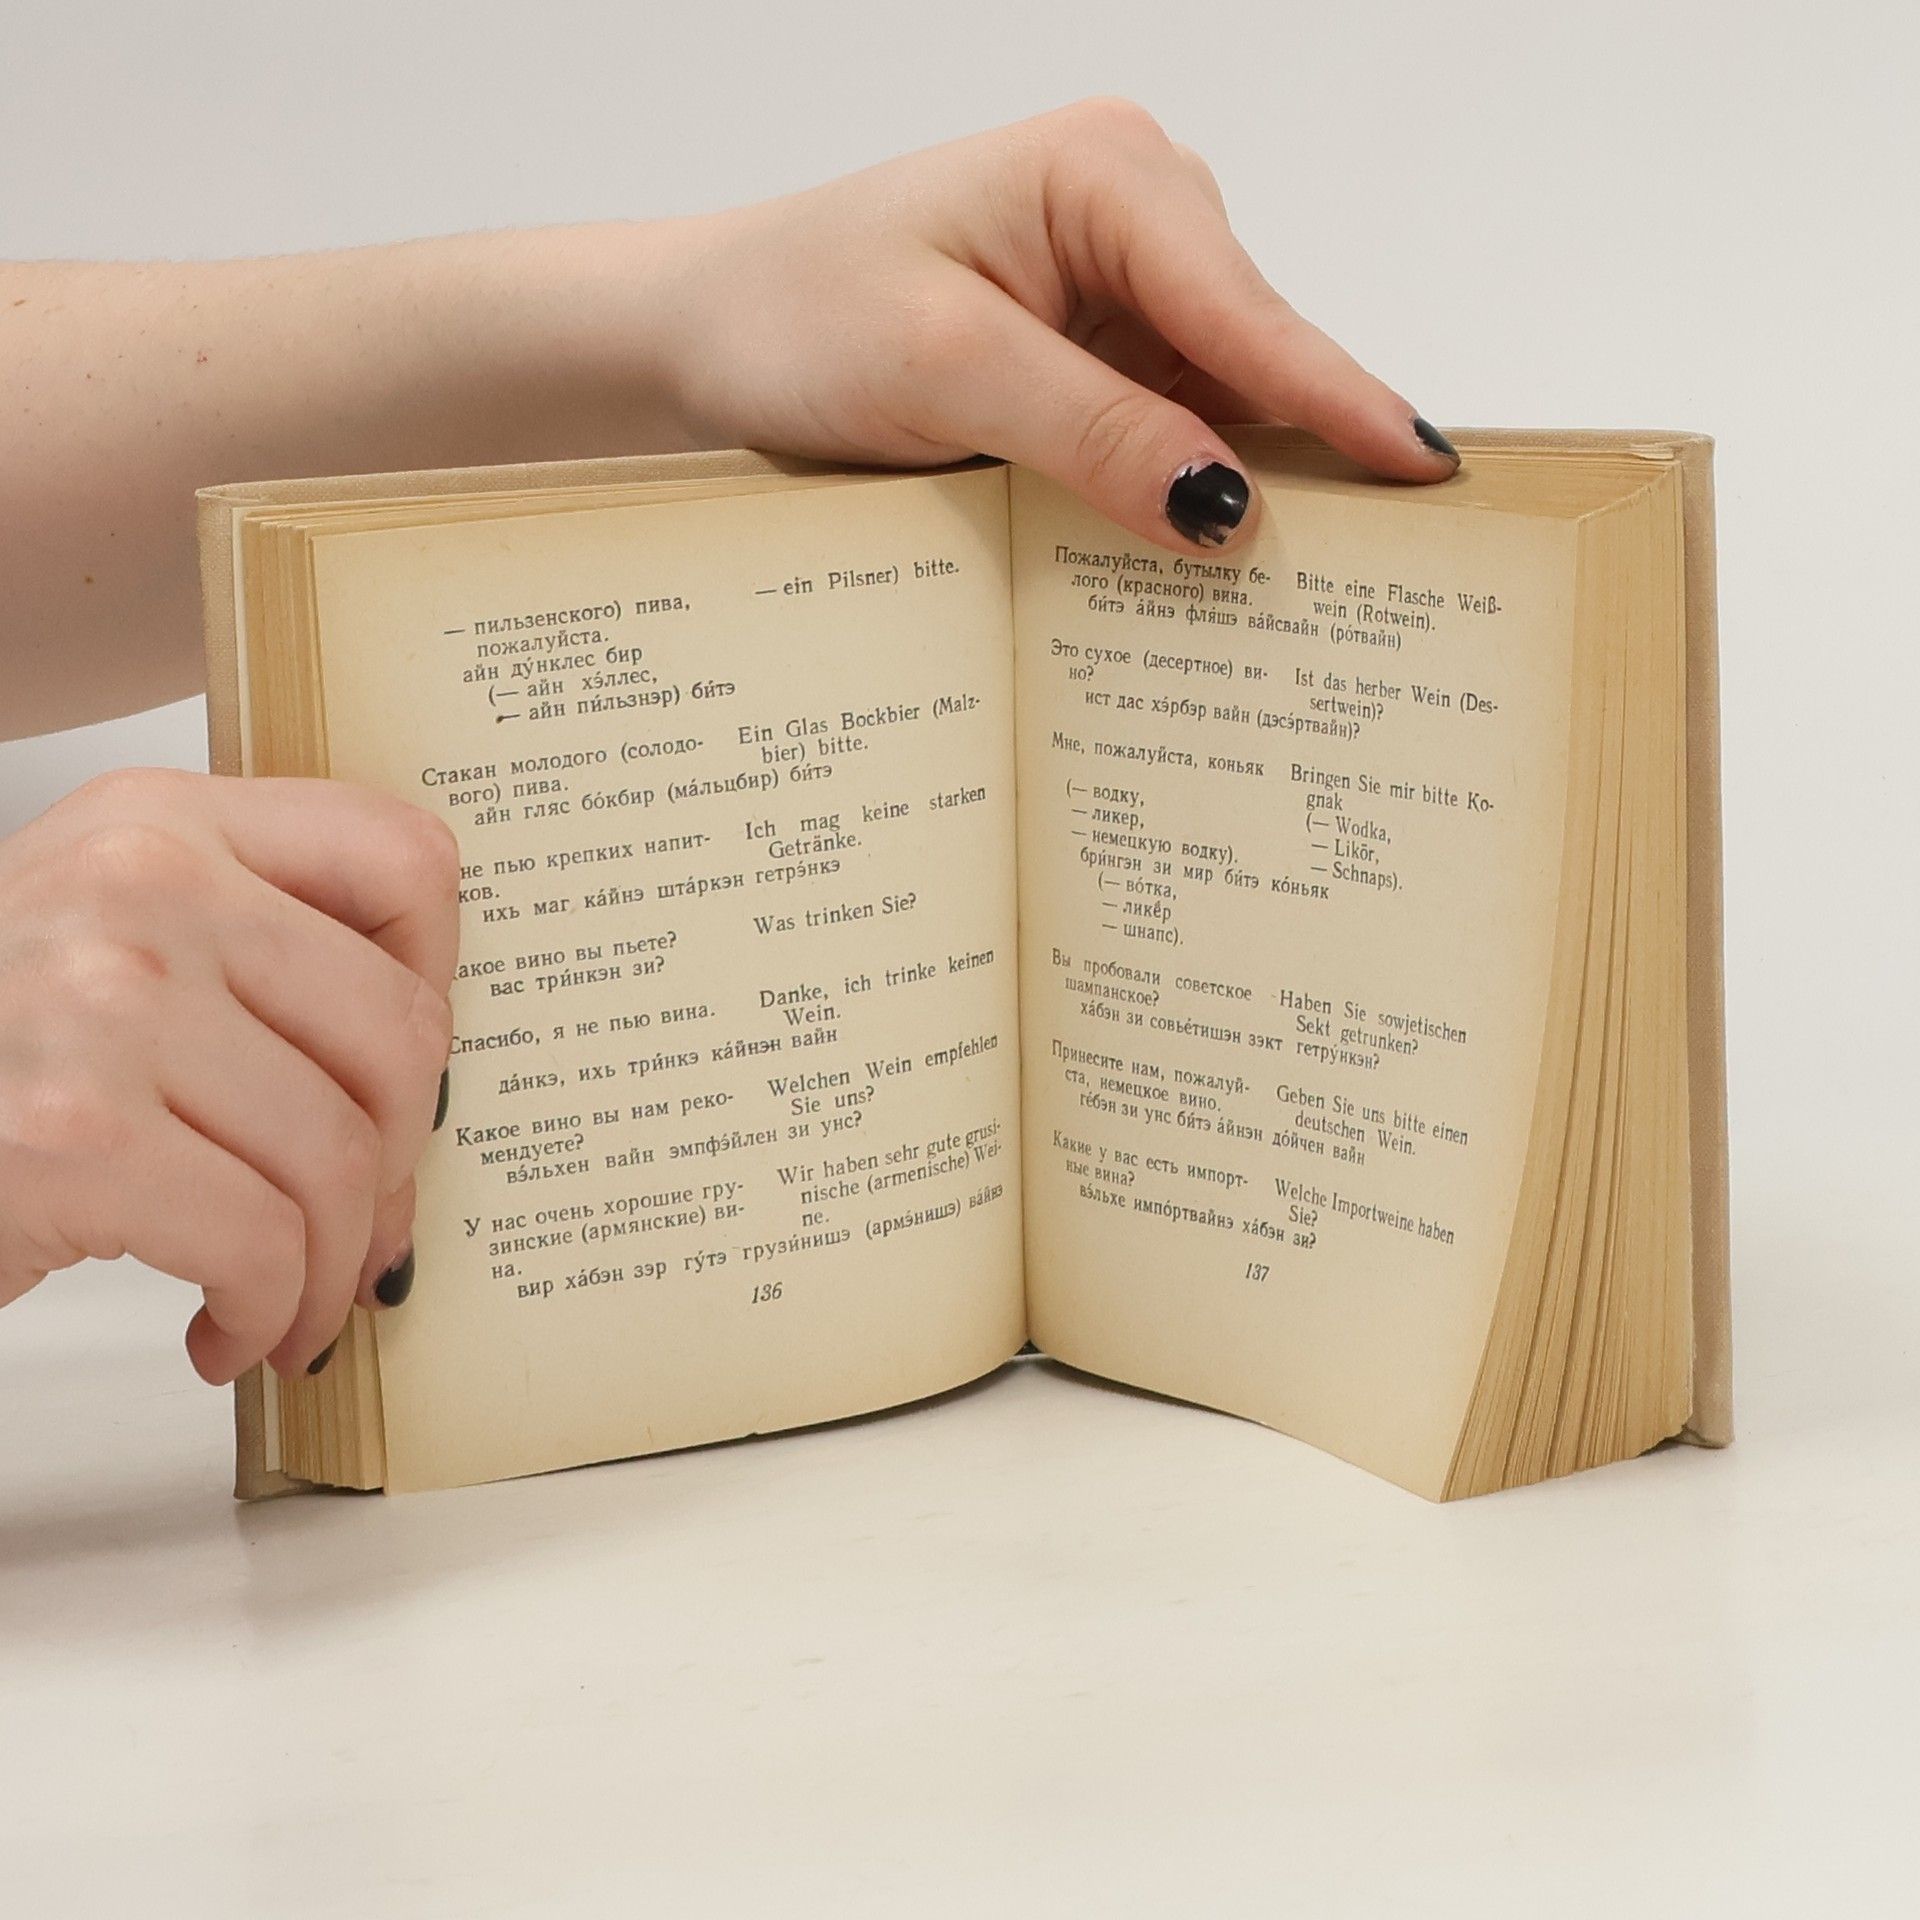 — пильзенского) пива,
пожалуйста.
— ein Pilsner) bitte.
айн ду́нклес бир
(— айн хэ́ллес,
— айн пи́льзнэр) би́тэ
Стакан молодого (солодо-
вого) пива.
Ein Glas Bockbier (Malz-
bier) bitte.
айн гляс бо́кбир (ма́льцбир) би́тэ
не пью крепких напит-
ков.
Ich mag keine starken
Getränke.
ихь маг ка́йнэ шта́ркэн гетрэ́нкэ
акое вино вы пьете?
Was trinken Sie?
вас три́нкэн зи?
Спасибо, я не пью вина.
Danke, ich trinke keinen
Wein.
да́нкэ, ихь три́нкэ ка́йнэн вайн
Какое вино вы нам реко-
мендуете?
Welchen Wein empfehlen
Sie uns?
вэ́льхен вайн эмпфэ́йлен зи унс?
У нас очень хорошие гру-
зинские (армянские) ви-
на.
Wir haben sehr gute grusi-
nische (armenische) Wei-
ne.
вир ха́бэн зэр гу́тэ грузи́нишэ (армэ́нишэ) ва́йнэ
136
Пожалуйста, бутылку бе-
лого (красного) вина.
Bitte eine Flasche Weiß-
wein (Rotwein).
би́тэ а́йнэ фля́шэ ва́йсвайн (ро́твайн)
Это сухое (десертное) ви-
но?
Ist das herber Wein (Des-
sertwein)?
ист дас хэ́рбэр вайн (дэсэ́ртвайн)?
Мне, пожалуйста, коньяк
(— водку,
— ликер,
— немецкую водку).
Bringen Sie mir bitte Ko-
gnak
(— Wodka,
— Likör,
— Schnaps).
бри́нгэн зи мир би́тэ ко́ньяк
(— во́тка,
— ликё́р
— шнапс).
Вы пробовали советское
шампанское?
Haben Sie sowjetischen
Sekt getrunken?
ха́бэн зи совье́тишэн зэкт гетру́нкэн?
Принесите нам, пожалуй-
ста, немецкое вино.
Geben Sie uns bitte einen
deutschen Wein.
ге́бэн зи унс би́тэ а́йнэн до́йчен вайн
Какие у вас есть импорт-
ные вина?
Welche Importweine haben
Sie?
вэ́льхе импо́ртвайнэ ха́бэн зи?
137